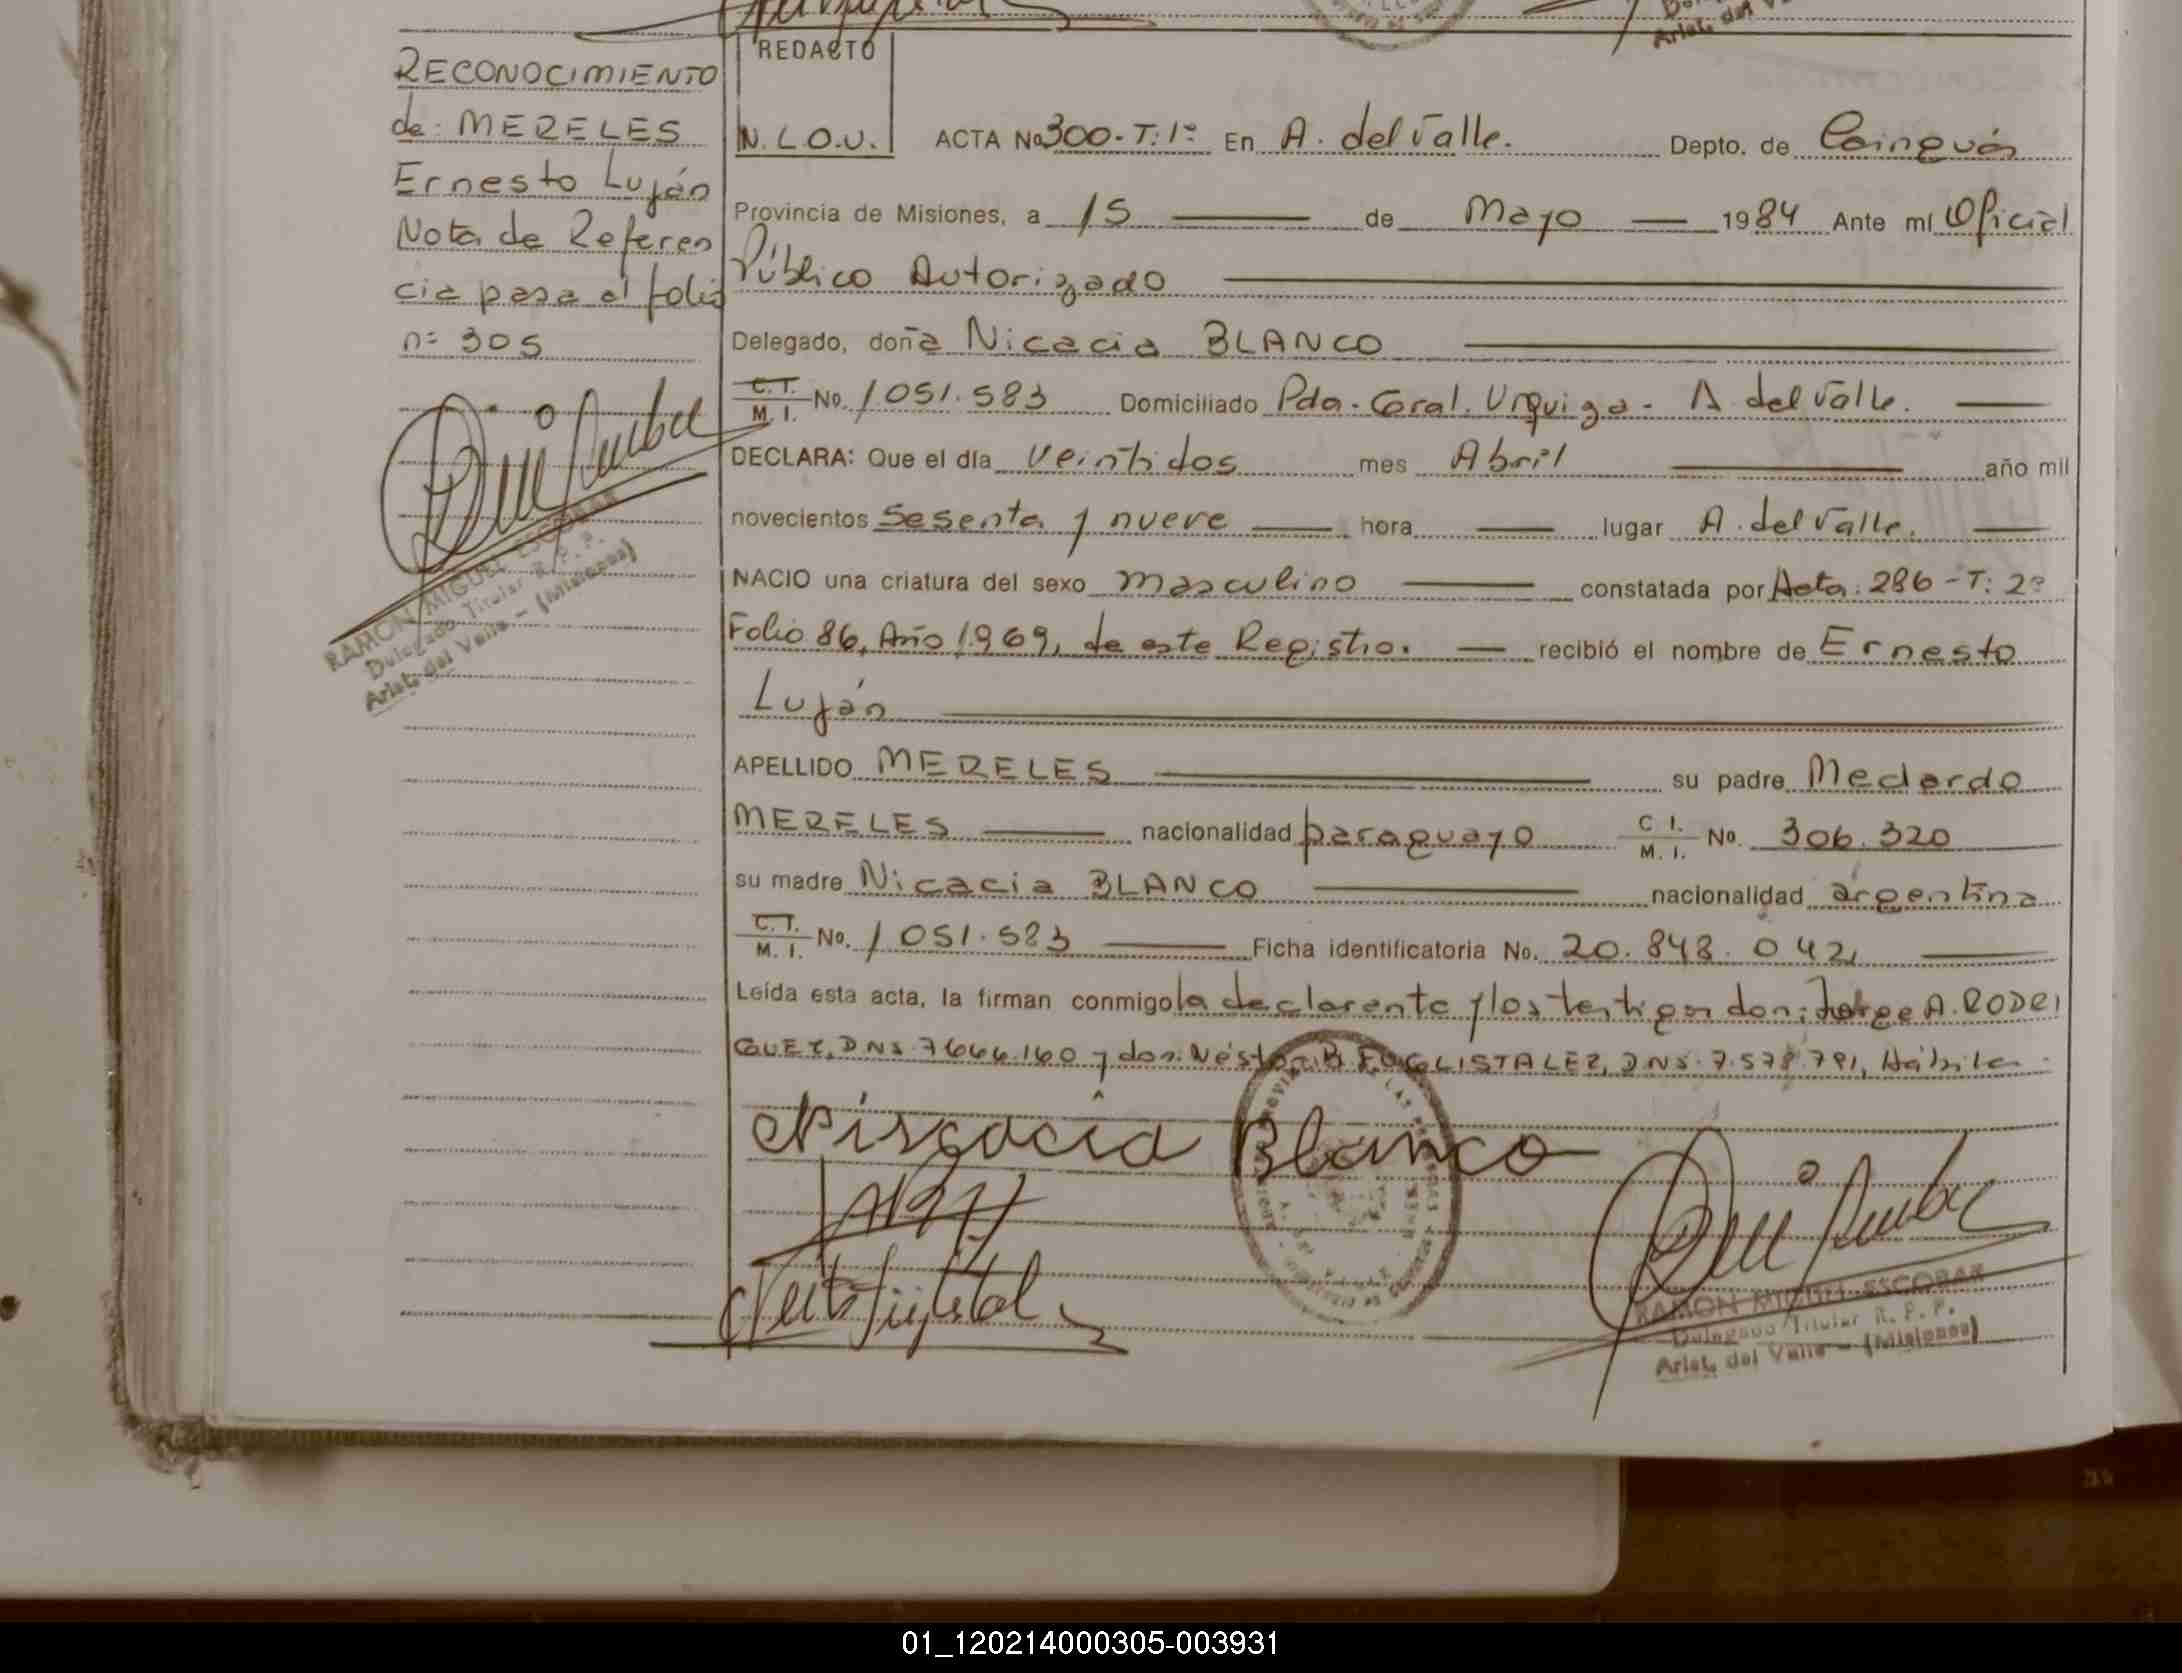 RECONOCIMIENTO
de: MERELES
Ernesto Luján
Nota de Referen
cia pasa al folio
nº 305
RAMON MIGUEL ESCOBAR
Delegado Titular R. P. P.
Arist. del Valle - (Misiones)
REDACTO
N.L.O.U.
ACTA No 300-T:1º En A. del Valle. Depto. de Cainguás
Provincia de Misiones, a 15 de Mayo 1984 Ante mí Oficial
Público Autorizado
Delegado, doña Nicacia BLANCO
C.I. M.I. No. 1051.583 Domiciliado Pda. Gral. Urquiza - A del Valle.
DECLARA: Que el día veintidos mes Abril año mil
novecientos sesenta y nueve hora lugar A. del Valle.
NACIO una criatura del sexo masculino constatada por Acta: 286-T: 2º
Folio 86, Año 1.969, de este Registro. recibió el nombre de Ernesto
Luján
APELLIDO MERELES su padre Medardo
MERELES nacionalidad paraguayo C I. M. I. No. 306.320
su madre Nicacia BLANCO nacionalidad argentina
C.I. M. I. No. 1051.583 Ficha identificatoria No. 20.848.042
Leída esta acta, la firman conmigo la declarante y los testigos don: Jorge A. RODRI
GUEZ, DNI. 7666.160 y don: Néstor B. DNI. 7.578.791, Hábiles
Niscacia Blanco
RAMON MIGUEL ESCOBAR
Delegado Titular R. P. P.
Arist. del Valle - (Misiones)
01_120214000305-003931